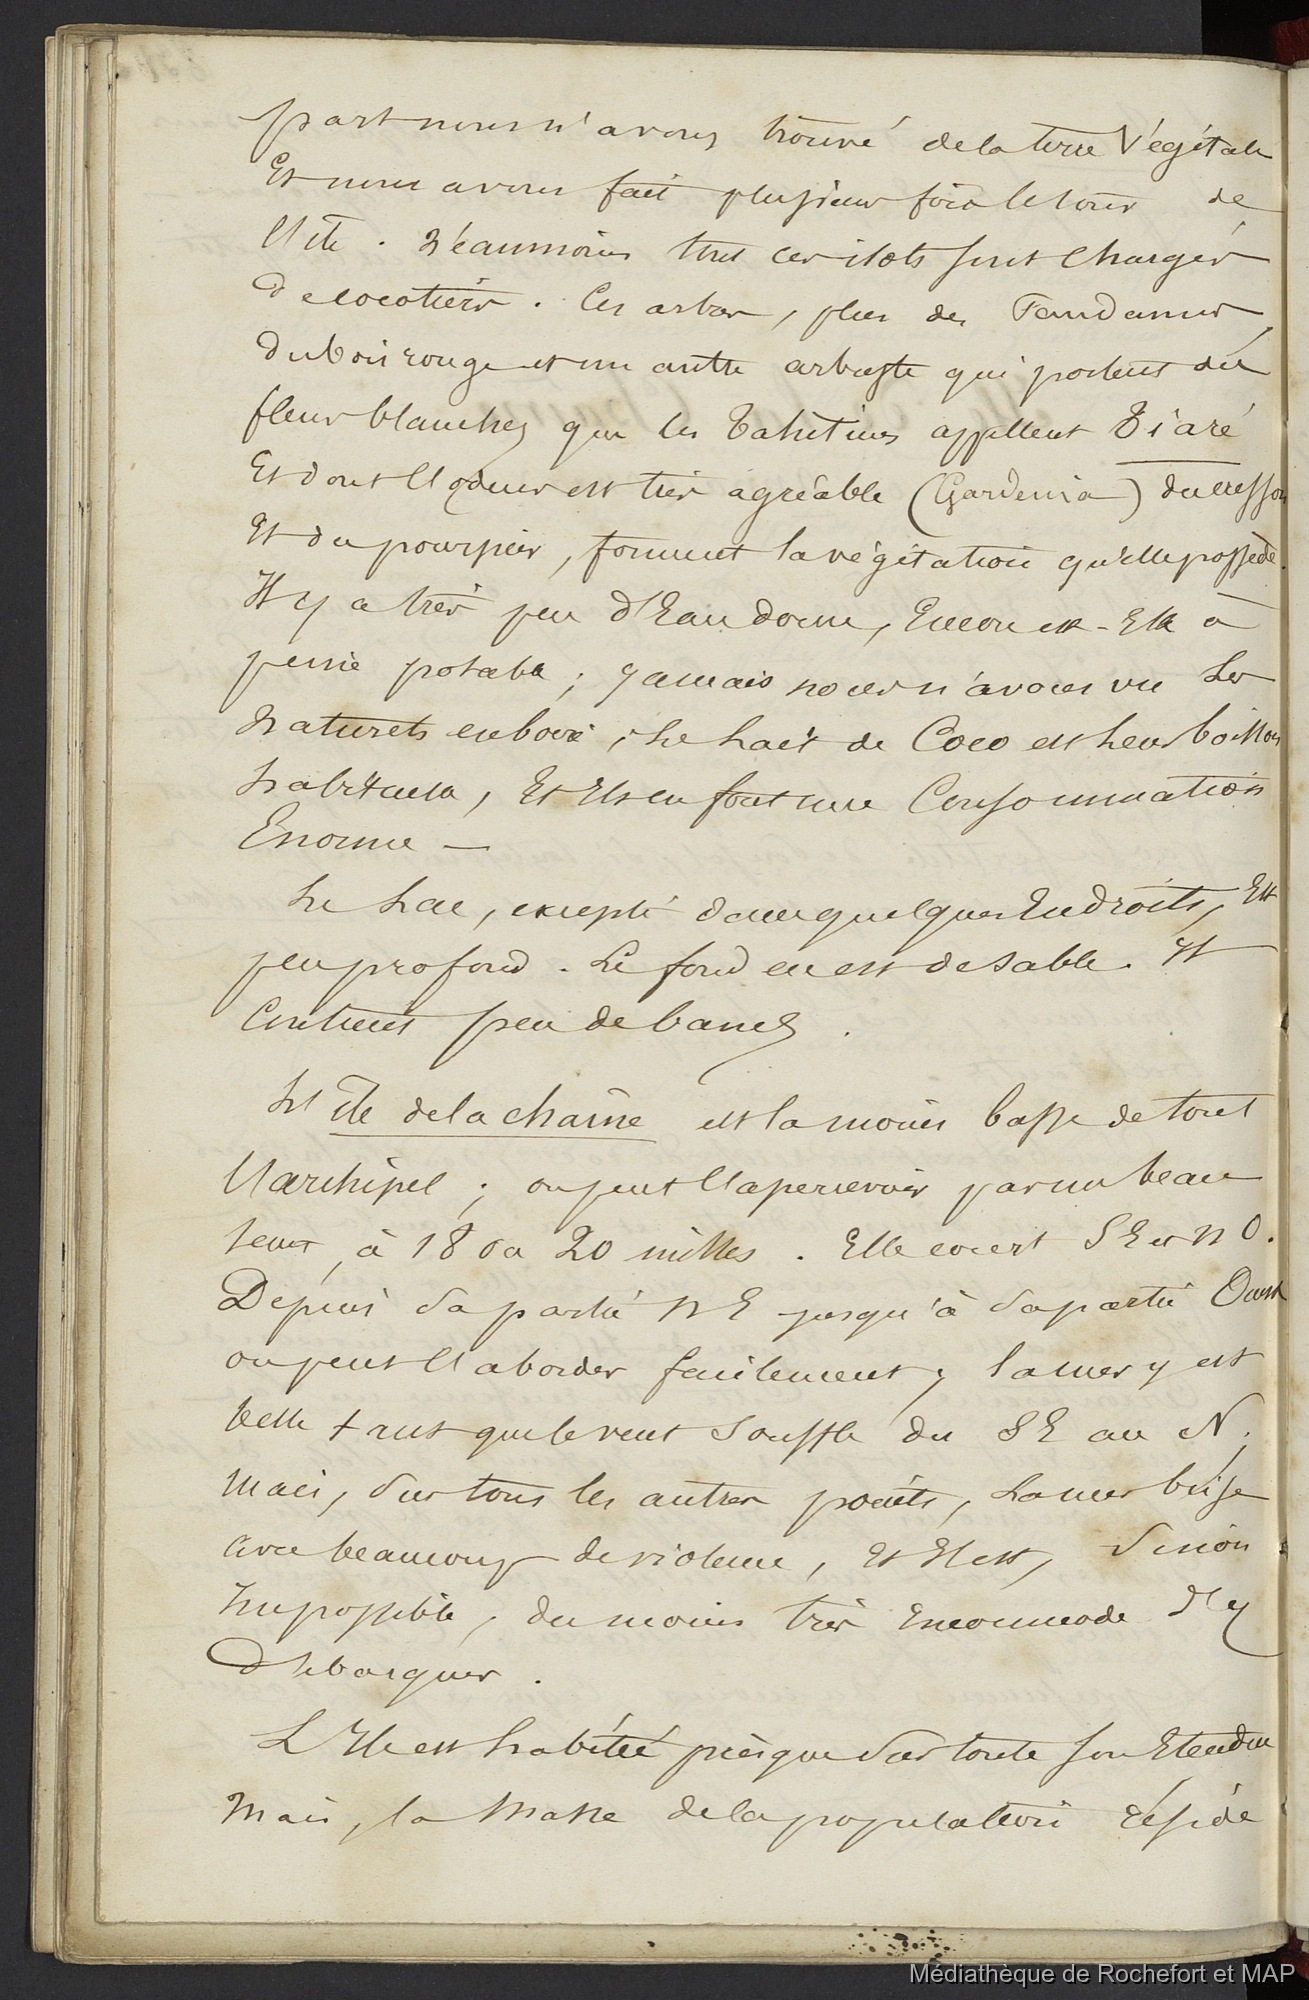 part nous n'avons trouvé de la terre Végétale
Et nous avons fait plusieurs fois le tour de
l'île. Néanmoins tous ces ilots sont chargés
de cocotiers. Ces arbres, plus des Pandanus,
du bois rouge et un autre arbuste qui portent des
fleurs blanches que les Tahitiens appellent Tiaré
Et dont l'odeur est très agréable (Gardenia) du cresson
Et du pourpier, forment la végétation qu'elle possède.
Il y a très peu d'Eau douce, Encore est-Elle à
peine potable; jamais nous n'avons vu les
naturels en boire; le lait de Coco est leur boisson
habituelle, Et Ils en font une Consommation
Enorme —
Le Lac, excepté dans quelques Endroits, Est
peu profond. Le fond en est de sable. Il
Contient peu de bancs.
L'île de la chaîne est la moins basse de tout
l'archipel; on peut l'apercevoir par un beau
tems, à 18 ou 20 milles. Elle court SE et NO.
Depuis sa partie NE jusqu'à sa partie Ouest
on peut l'aborder facilement; la mer y est
belle tant que le vent souffle du SE au N;
mais, sur tous les autres points, la mer brise
avec beaucoup de violence, Et Il est, sinon
Impossible, du moins très Incommode d'y
débarquer.
L'Ile est habitée presque sur toute son Etendue
Mais, la Masse de la population réside
Médiathèque de Rochefort et MAP